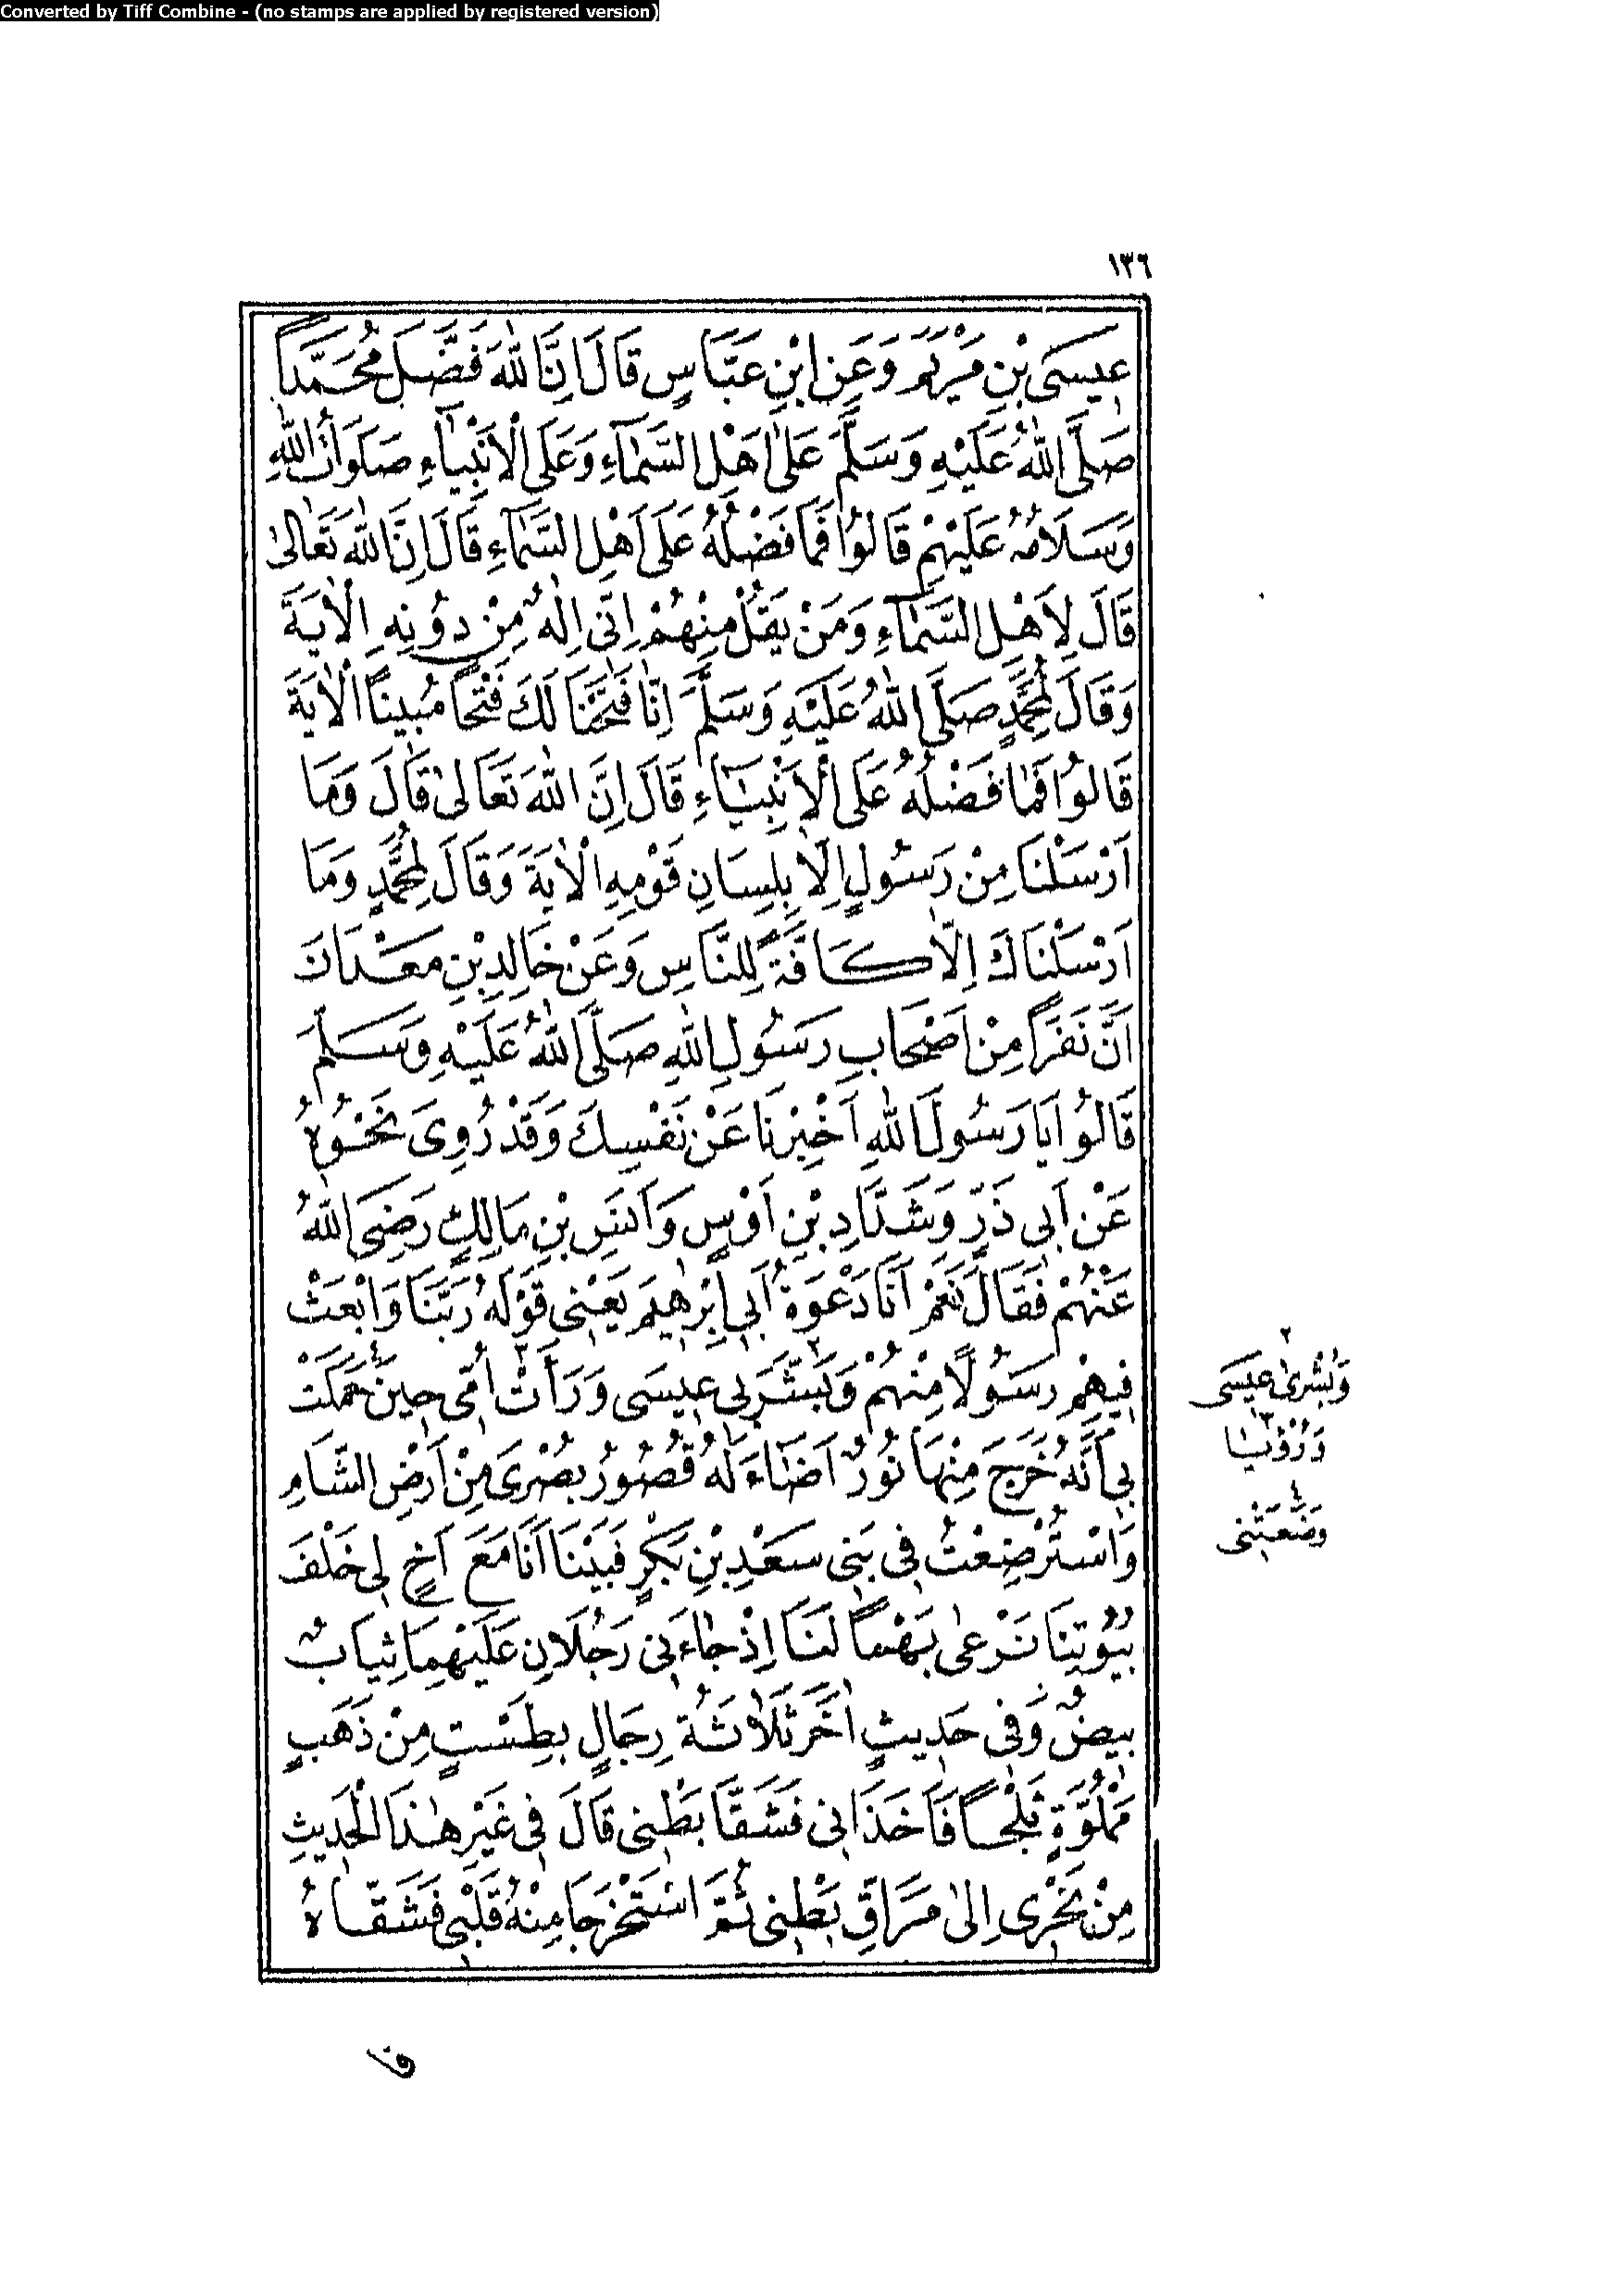 Converted by Tiff Combine - (no stamps are applied by registered version)
١٣٦
عِيسَى بْنِ مَرْيَمَ وَعَنِ ابْنِ عَبَّاسٍ قَالَ اِنَّ اللّٰهَ فَضَّلَ مُحَمَّدًا
صَلَّى اللّٰهُ عَلَيْهِ وَسَلَّمَ عَلٰى اَهْلِ السَّمَاۤءِ وَعَلَى الْاَنْبِيَاۤءِ صَلَوَاتُ اللّٰهِ
وَسَلَامُهُ عَلَيْهِمْ قَالُوا فَمَا فَضْلُهُ عَلَى اَهْلِ السَّمَاۤءِ قَالَ اِنَّ اللّٰهَ تَعَالٰى
قَالَ لِاَهْلِ السَّمَاۤءِ وَمَنْ يَقُلْ مِنْهُمْ اِنّٖى اِلٰهٌ مِنْ دُونِهِ الْاٰيَةَ
وَقَالَ لِمُحَمَّدٍ صَلَّى اللّٰهُ عَلَيْهِ وَسَلَّمَ اِنَّا فَتَحْنَا لَكَ فَتْحًا مُبِينًا الْاٰيَةَ
قَالُوا فَمَا فَضْلُهُ عَلَى الْاَنْبِيَاۤءِ قَالَ اِنَّ اللّٰهَ تَعَالٰى قَالَ وَمَا
اَرْسَلْنَا مِنْ رَسُولٍ اِلَّا بِلِسَانِ قَوْمِهِ الْاٰيَةَ وَقَالَ لِمُحَمَّدٍ وَمَا
اَرْسَلْنَاكَ اِلَّا كَافَّةً لِلنَّاسِ وَعَنْ خَالِدِ بْنِ مَعْدَانَ
اَنَّ نَفَرًا مِنْ اَصْحَابِ رَسُولِ اللّٰهِ صَلَّى اللّٰهُ عَلَيْهِ وَسَلَّمَ
قَالُوا يَا رَسُولَ اللّٰهِ اَخْبِرْنَا عَنْ نَفْسِكَ وَقَدْ رُوِىَ نَحْوُهُ
عَنْ اَبِى ذَرٍّ وَشَدَّادِ بْنِ اَوْسٍ وَاَنَسِ بْنِ مَالِكٍ رَضِىَ اللّٰهُ
عَنْهُمْ فَقَالَ نَعَمْ اَنَا دَعْوَةُ اَبِى اِبْرٰهِيمَ يَعْنِى قَوْلَهُ رَبَّنَا وَابْعَثْ
فِيهِمْ رَسُولًا مِنْهُمْ وَبَشَّرَ ٢ بِى عِيسَى وَرَأَتْ ٣ اُمِّى حِينَ حَمَلَتْ ٤
بِى اَنَّهُ خَرَجَ مِنْهَا نُورٌ اَضَاءَ لَهُ قُصُورُ بُصْرَى مِنْ اَرْضِ الشَّامِ
وَاسْتُرْضِعْتُ فِى بَنِى سَعْدِ بْنِ بَكْرٍ فَبَيْنَا اَنَا مَعَ اَخٍ لِى خَلْفَ
بُيُوتِنَا نَرْعٰى بَهْمًا لَنَا اِذْ جَاءَنِى رَجُلَانِ عَلَيْهِمَا ثِيَابٌ
بِيضٌ وَفِى حَدِيثٍ اٰخَرَ ثَلَاثَةُ رِجَالٍ بِطِسْتٍ مِنْ ذَهَبٍ
مَمْلُوَّةٍ ثَلْجًا فَاَخَذَانِى فَشَقَّا بَطْنِى قَالَ فِى غَيْرِ هٰذَا الْحَدِيثِ
مِنْ نَحْرِى اِلٰى مَرَاقِّ بَطْنِى ثُمَّ اسْتَخْرَجَا مِنْهُ قَلْبِى فَشَقَّاهُ
٢ وَبُشْرٰى عِيسَى
٣ وَرُؤْيَا
٤ وَضَعَتْنِى
فا